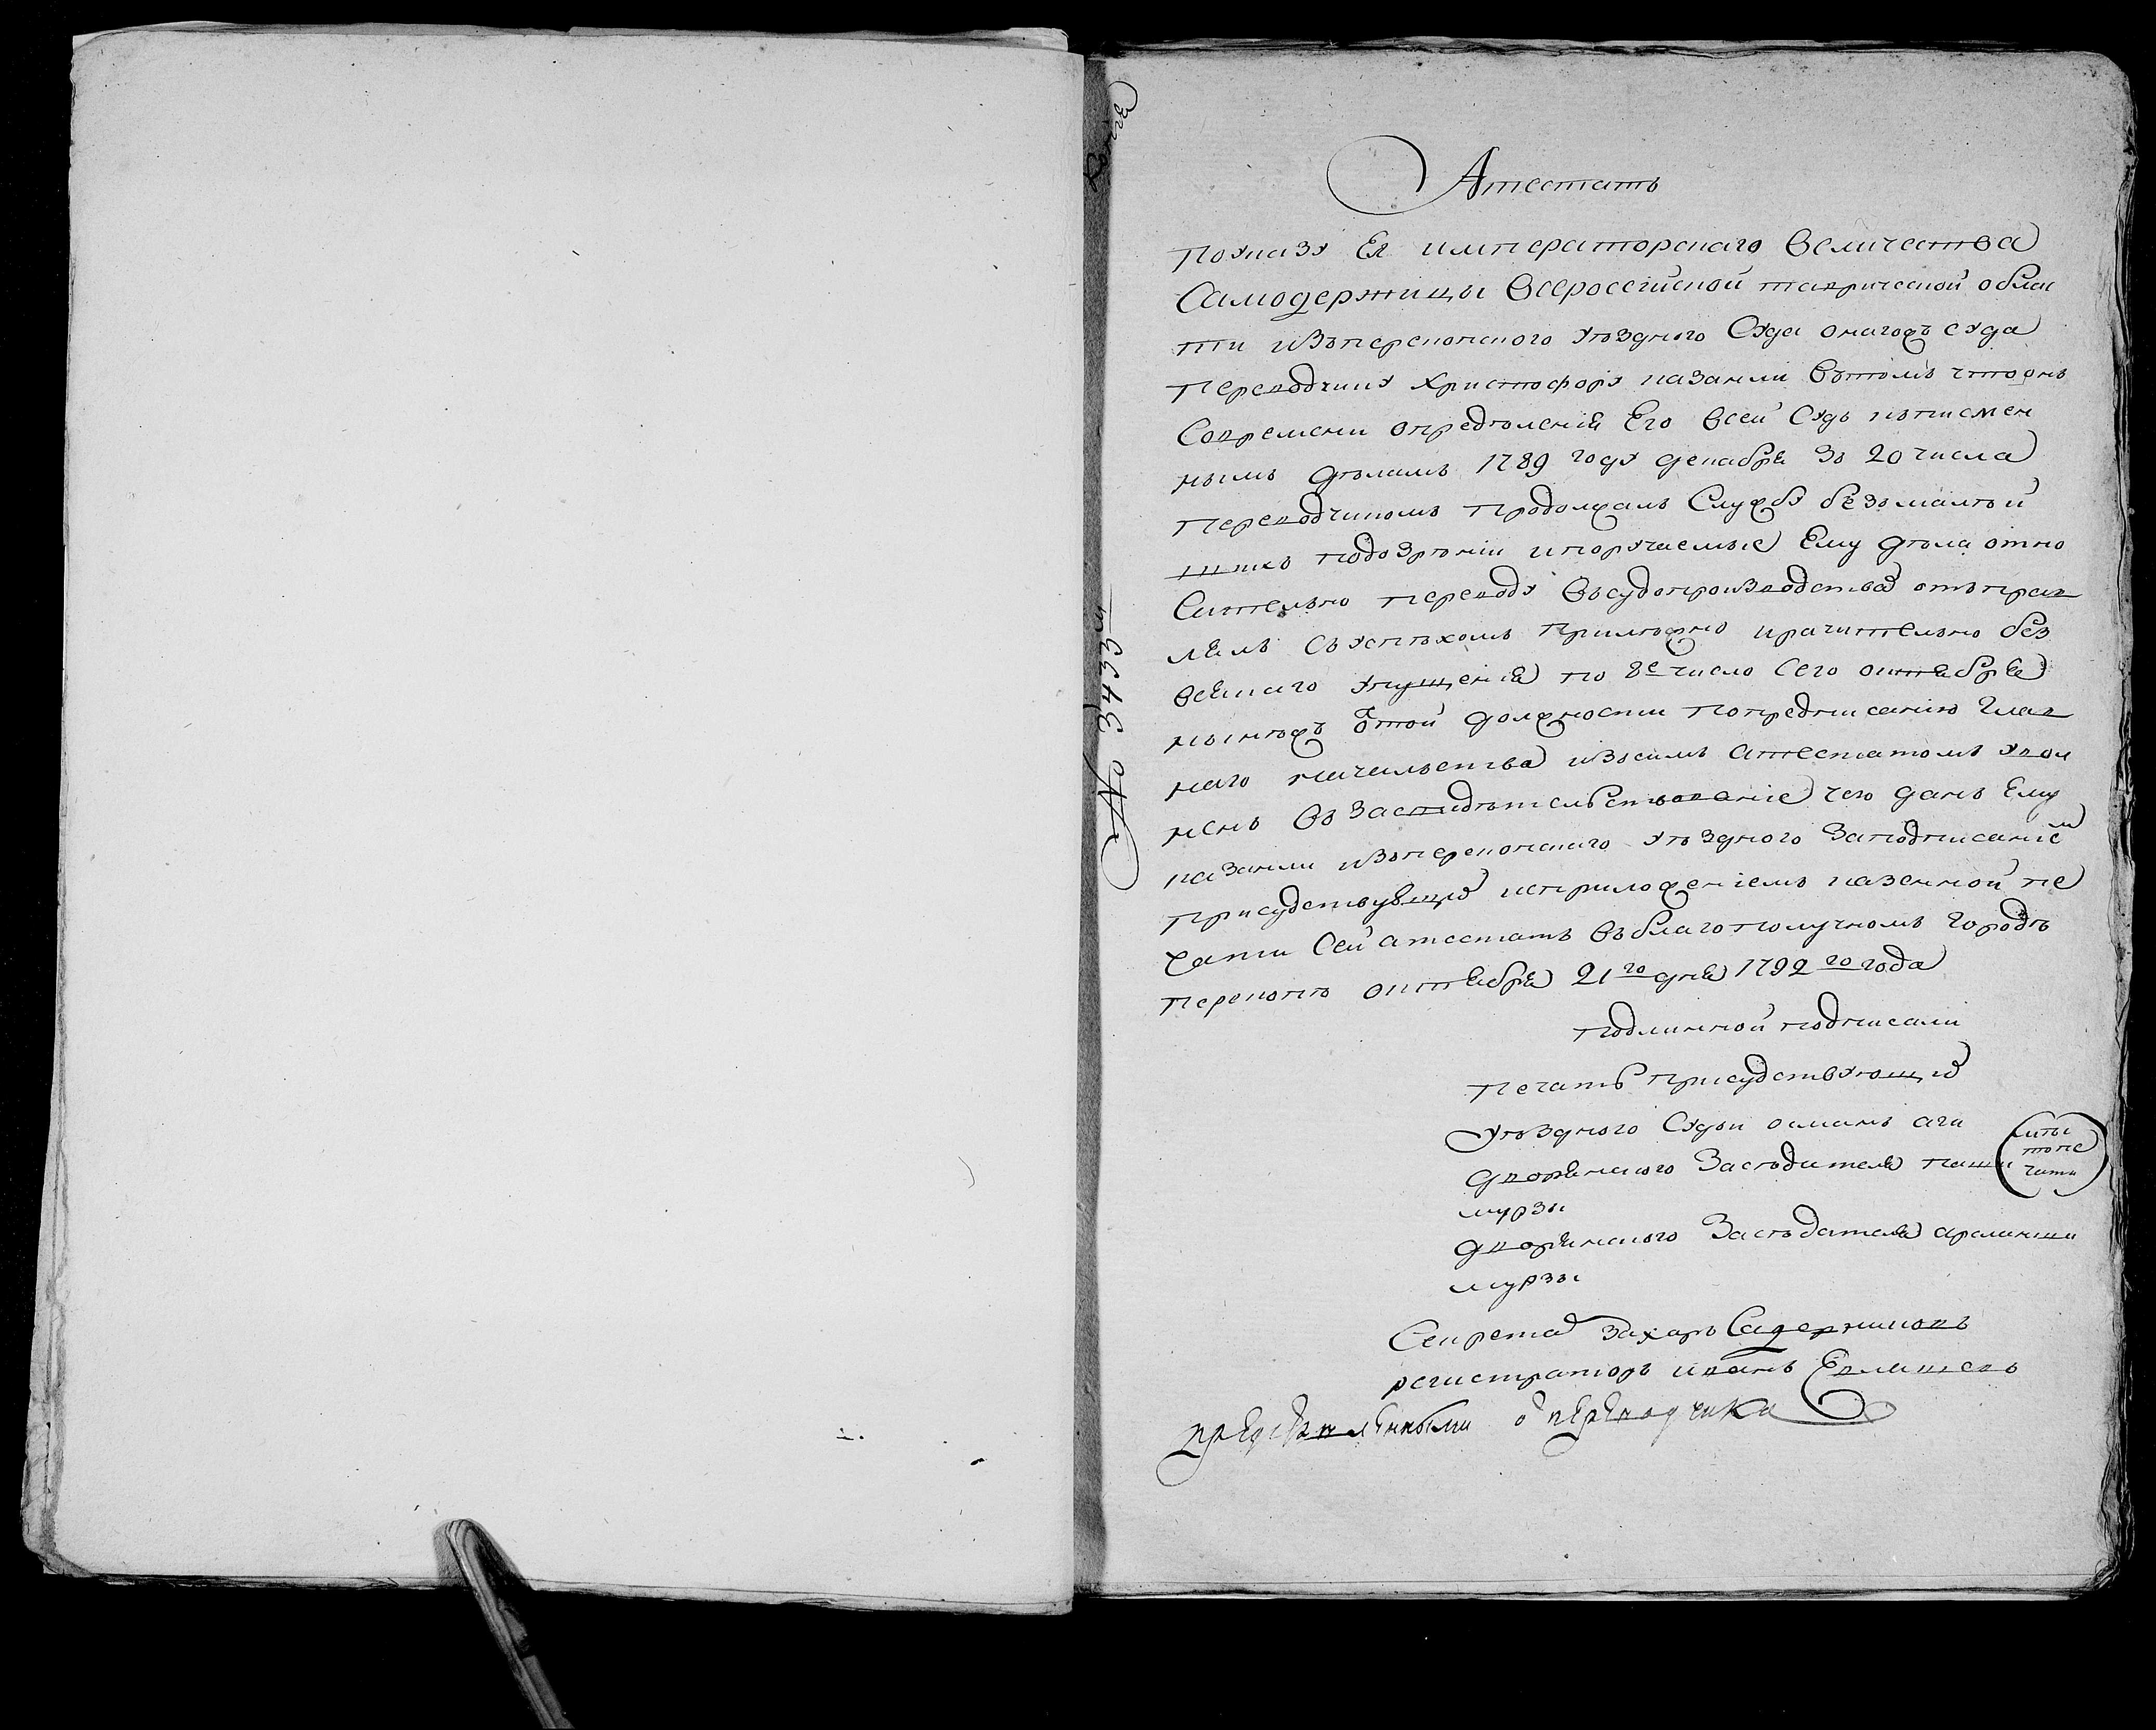 Копия
No 3433 й
Атестатъ
поуказу Ея императорскаго Величества
Самодержицы Всеросегиской таврической облас
ти изъперекопского уѣздного Суда онагожъ суда
переводчику Христофору казанли Втомъ чтоонъ
Современи определения Его Всей Судъ кписмен
нымъ дѣламъ 1789 году декабря Зъ 20 числа
переводчикомъ продолжалъ Службу безомалѣй
шихъ подозрѣнии ипоручаемые Ему дѣла отно
Сителъно переводу Всудопроизводства отправ
лялъ Суспѣхомъ прилѣжно ирачителъно без
Всякаго упущения по 8е число Сего октября
нынѣжъ отой должности попредписанию Глав
наго начальства исъсимъ атестатомъ увол
ненъ Взасвидѣтельствование чего данъ Ему
казанли изъперекопскаго уѣздного Заподписаниемъ
присудствующихъ исприложениемъ казенной пе
чати Сей атестатъ Вблагополучномъ городѣ
перекопѣ октября 21 го дня 1792 го года
подлинной подписали
печать присудствующих
уѣздного Судьи османъ аги
дворянского Засѣдателя паши
мурзы
дворянского Засѣдателя арслинши
мурзы
мѣсто пе
чати
Секретар Захаръ
регистраторъ иванъ
переводчика